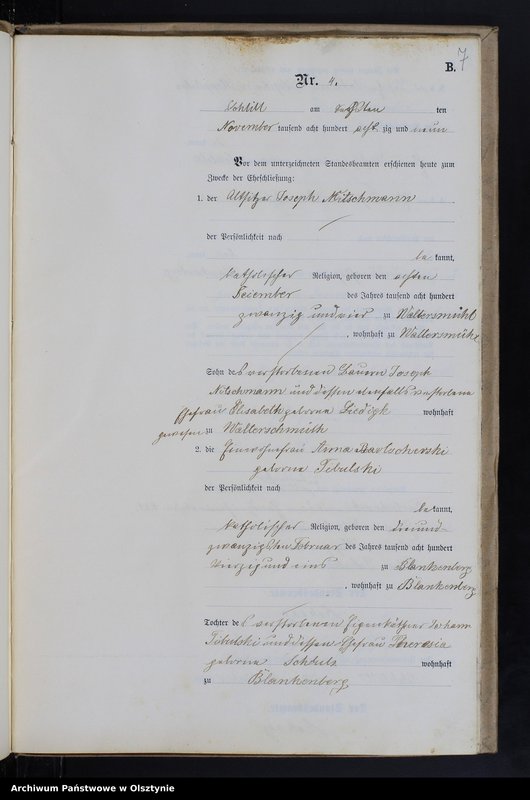 B. 7
Nr. 4.
am ten
November tausend acht hundert acht zig und neun
Vor dem unterzeichneten Standesbeamten erschienen heute zum
Zwecke der Eheschließung:
1. der Altsitzer Joseph Nitschmann
der Persönlichkeit nach
be kannt,
katholischer Religion, geboren den achten
Dezember des Jahres tausend acht hundert
zwanzig und vier zu Woltersmühl
, wohnhaft zu Woltersmühl
Sohn des verstorbenen Bauern Joseph
Nitschmann und dessen ebenfalls verstorbene
Ehefrau Elisabeth geborene wohnhaft
gewesen zu
2. die Anna
geborene Tibulski
der Persönlichkeit nach
be kannt,
katholischer Religion, geboren den dreiund
zwanzigsten Februar des Jahres tausend acht hundert
vierzig und eins zu Blankenberg
, wohnhaft zu Blankenberg
Tochter des verstorbenen Eigenkäthner Johann
Tibulski und dessen Ehefrau Theresia
geborene Schulz wohnhaft
zu Blankenberg
Archiwum Państwowe w Olsztynie